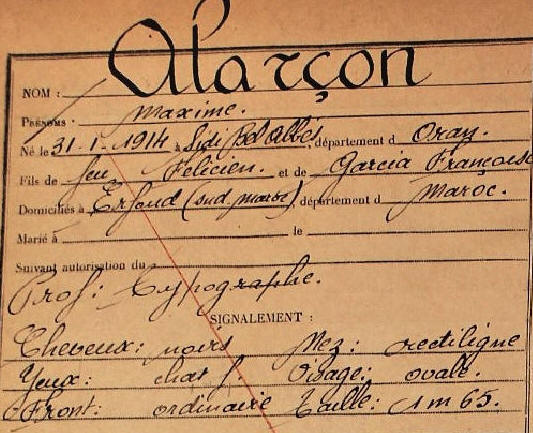 NOM : Alarçon
PRÉNOMS : Maxime.
Né le 31-1-1914 à Sidi Bel Abbès, département d Oran.
Fils de feu Félicien. et de Garcia Françoise
Domiciliés à Erfoud (sud maroc), département d Maroc.
Marié à le
Suivant autorisation du
Prof: typographe.
SIGNALEMENT :
Cheveux: noirs Nez: rectiligne
Yeux: chat f Visage: ovale.
Front: ordinaire Taille: 1m65.